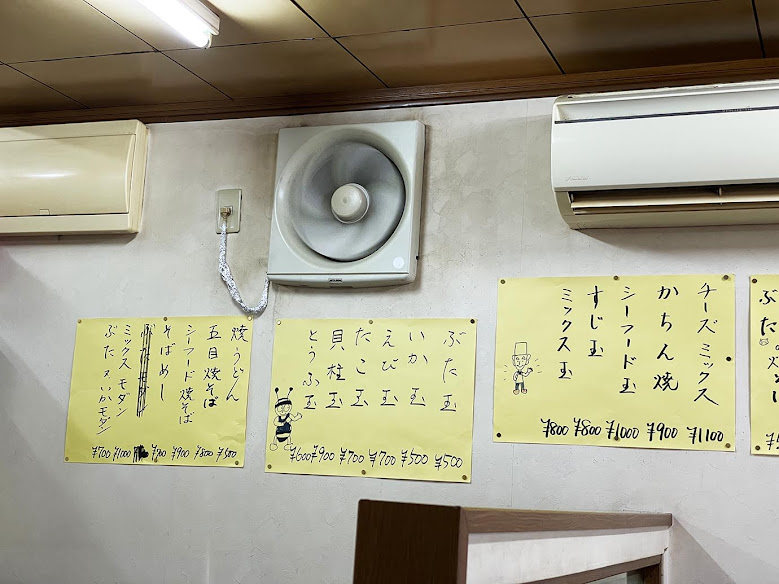 ぶた
チーズミックス ¥1100
かちん焼 ¥900
シーフード玉 ¥1000
すじ玉 ¥800
ミックス玉 ¥800
ぶた玉 ¥500
いか玉 ¥500
えび玉 ¥700
たこ玉 ¥700
貝柱玉 ¥900
とうふ玉 ¥600
焼うどん ¥500
五目焼そば ¥800
シーフード焼そば ¥900
そばめし ¥900
ミックス モダン ¥1000
ぶた又いかモダン ¥700